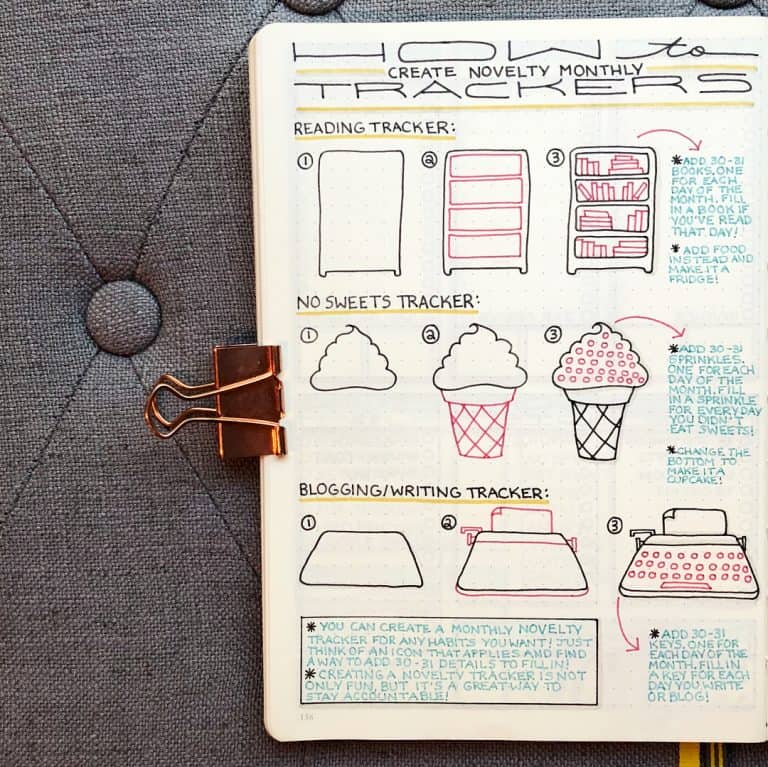 HOW to
CREATE NOVELTY MONTHLY
TRACKERS
READING TRACKER:
1 2 3
*ADD 30-31
BOOKS, ONE
FOR EACH
DAY OF THE
MONTH. FILL
IN A BOOK IF
YOU'VE READ
THAT DAY!
*ADD FOOD
INSTEAD AND
MAKE IT A
FRIDGE!
NO SWEETS TRACKER:
1 2 3
*ADD 30-31
SPRINKLES,
ONE FOR EACH
DAY OF THE
MONTH. FILL
IN A SPRINKLE
FOR EVERY DAY
YOU DIDN'T
EAT SWEETS!
*CHANGE THE
BOTTOM TO
MAKE IT A
CUPCAKE!
BLOGGING/WRITING TRACKER:
1 2 3
*ADD 30-31
KEYS, ONE FOR
EACH DAY OF THE
MONTH. FILL IN
A KEY FOR EACH
DAY YOU WRITE
OR BLOG!
*YOU CAN CREATE A MONTHLY NOVELTY
TRACKER FOR ANY HABITS YOU WANT! JUST
THINK OF AN ICON THAT APPLIES AND FIND
A WAY TO ADD 30-31 DETAILS TO FILL IN!
*CREATING A NOVELTY TRACKER IS NOT
ONLY FUN, BUT IT'S A GREAT WAY TO
STAY ACCOUNTABLE!
136